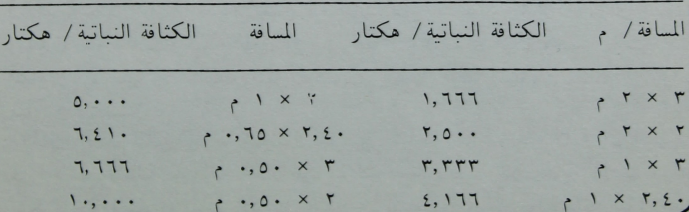 المسافة / م الكثافة النباتية / هكتار المسافة الكثافة النباتية / هكتار
٣ × ٢ م ١,٦٦٦ × ١ م ٥,٠٠٠
٢ × ٢ م ٢,٥٠٠ ٢,٤٠ × ٠,٦٥ م ٦,٤١٠
٣ × ١ م ٣,٣٣٣ ٣ × ٠,٥٠ م ٦,٦٦٦
٢,٤٠ × ١ م ٤,١٦٦ ٢ × ٠,٥٠ م ١٠,٠٠٠